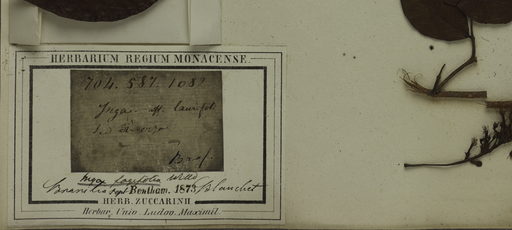 HERBARIUM REGIUM MONACENSE.
704. 587. 108
Inga aff. laurifol
Bras.
Inga laurifolia Willd
Brasilia sept Bentham. 1875 Blanchet
HERB. ZUCCARINII
Herbar. Univ. Ludov. Maximil.